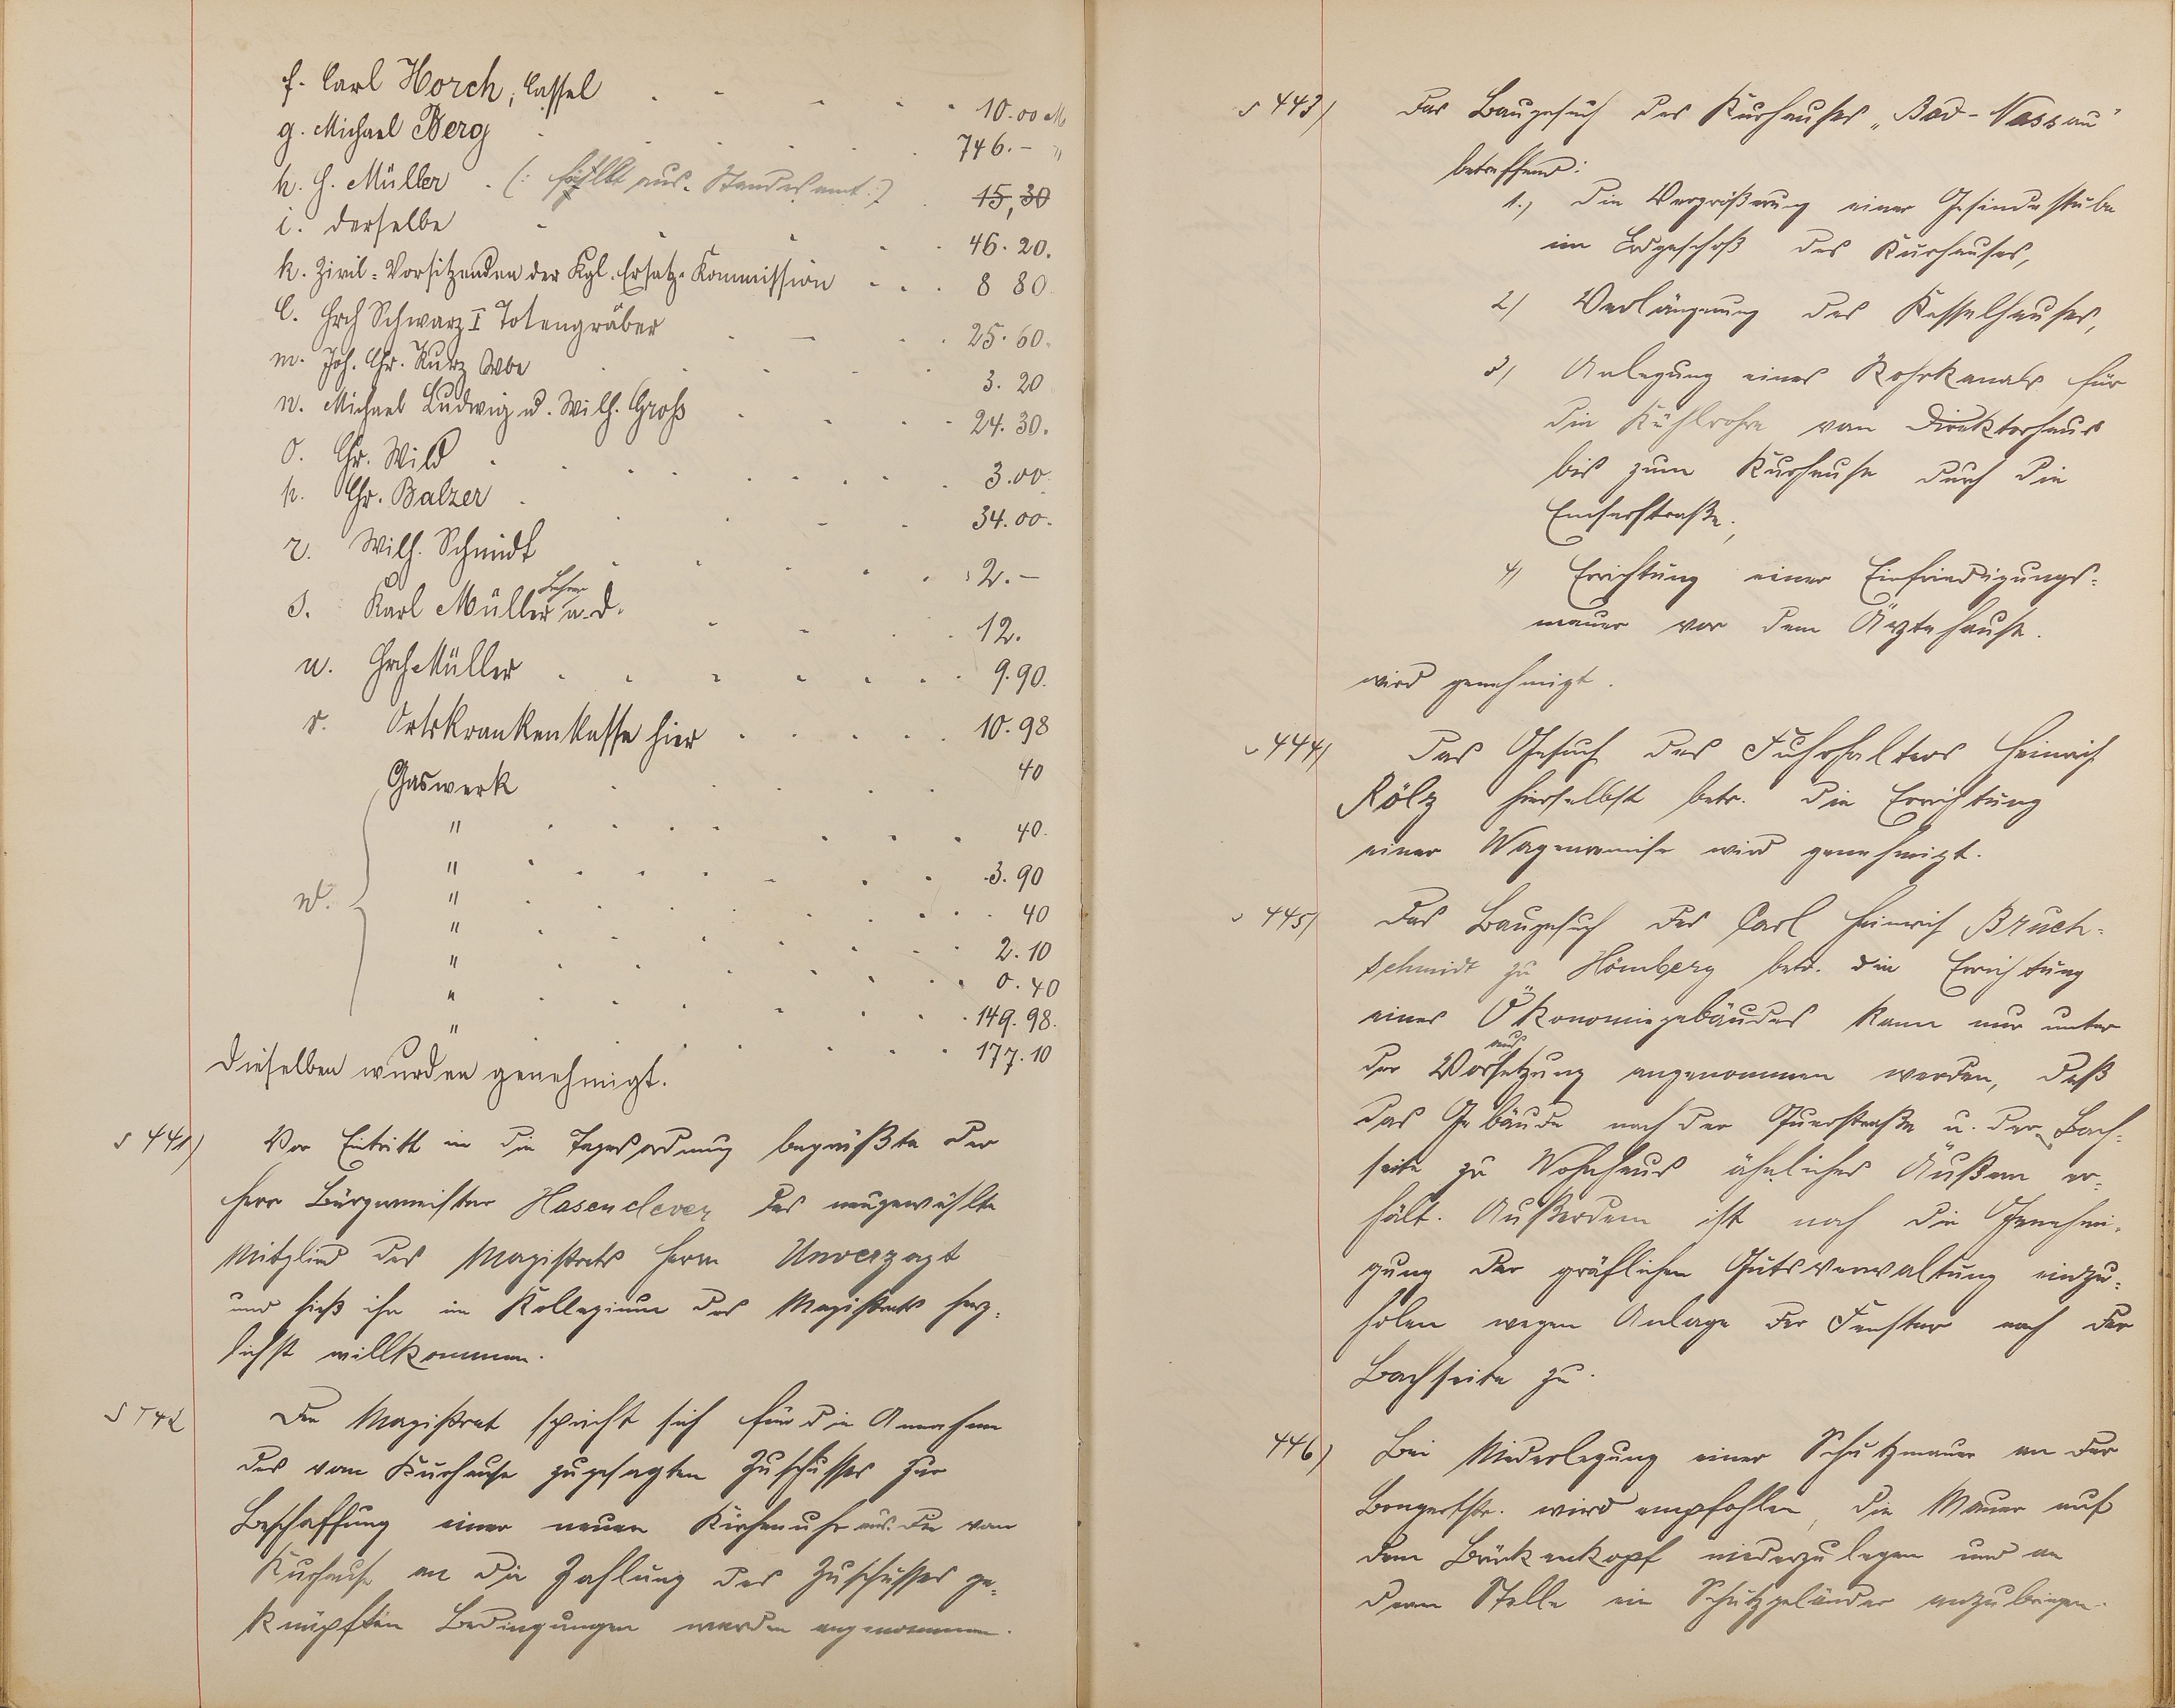 f. Carl Horch, Cassel . . . . . 10.00 M
g. Michael Berg . . . . . 746.— "
h. H. Müller . (: fällt aus. Standesamt :) . 15,30
i. derselbe . . . . . 46.20.
k. Zivil-Vorsitzenden der Kgl. Ersatz-Kommission . . . 8 80
l. Hrch Schwarz I Totengräber . . . 25.60.
m. Joh. Chr. Kurz Wbe . . . . 3.20
n. Michael Ludwig u. Wilh. Groß . . . . 24.30.
o. Chr. Wild . . . . . . . 3.00
p. Chr. Balzer . . . . . 34.00.
r. Wilh. Schmidt . . . . . 2.—
s. Karl Müller Lehrer a.d. . . . 12.
u. Hrch Müller . . . . . . . 9.90.
v. Ortskrankenkasse hier . . . . . 10.98
Gaswerk . . . . . 40
" . . . . . . . 40.
" . . . . . . . 3.90
w. " . . . . . . . 40
" . . . . . . . 2.10
" . . . . . . 0.40
" . . . . . . 149.98.
" . . . . . . 177.10
Dieselben wurden genehmigt.
§ 441) Vor Eintritt in die Tagesordnung begrüßte der
Herr Bürgermeister Hasenclever das neugewählte
Mitglied des Magistrats Herrn Unverzagt
und hieß ihn im Kollegium des Magistrats herz-
lichst willkommen.
§ 442 Der Magistrat spricht sich für die Annahme
des vom Kurhause zugesagten Zuschusses zur
Beschaffung einer neuen Kirchenuhr aus. Die vom
Kurhause an die Zahlung des Zuschusses ge-
knüpften Bedingungen werden angenommen.
§ 443) Das Baugesuch des Kurhauses „Bad-Nassau"
betreffend:
1.) die Vergrößerung einer Gesindestube
im Erdgeschoß des Kurhauses,
2) Verlängerung des Kesselhauses,
3) Anlegung eines Rohrkanals für
die Kühlrohre vom Direktorhaus
bis zum Kurhause durch die
Emserstraße,
4) Errichtung einer Einfriedigungs-
mauer vor dem Ärztehause.
wird genehmigt.
§ 444) Das Gesuch des Fuhrhalters Heinrich
Rölz hierselbst betr. die Errichtung
einer Wagenremise wird genehmigt.
§ 445) Das Baugesuch des Carl Heinrich Bruch-
schmidt zu Hömberg betr. die Errichtung
eines Ökonomiegebäudes kann nur unter
der Voraussetzung angenommen werden, daß
das Gebäude nach der Querstraße u. der Bach-
seite zu Wohnhaus ähnliches Äußere er-
hält. Außerdem ist noch die Genehmi-
gung der gräflichen Gutsverwaltung einzu-
holen wegen Anlage der Fenster nach der
Bachseite zu.
446) Bei Niederlegung einer Schutzmauer an der
Bongertstr. wird empfohlen, die Mauer auf
dem Brückenkopf niederzulegen und an
deren Stelle ein Schutzgeländer anzubringen.